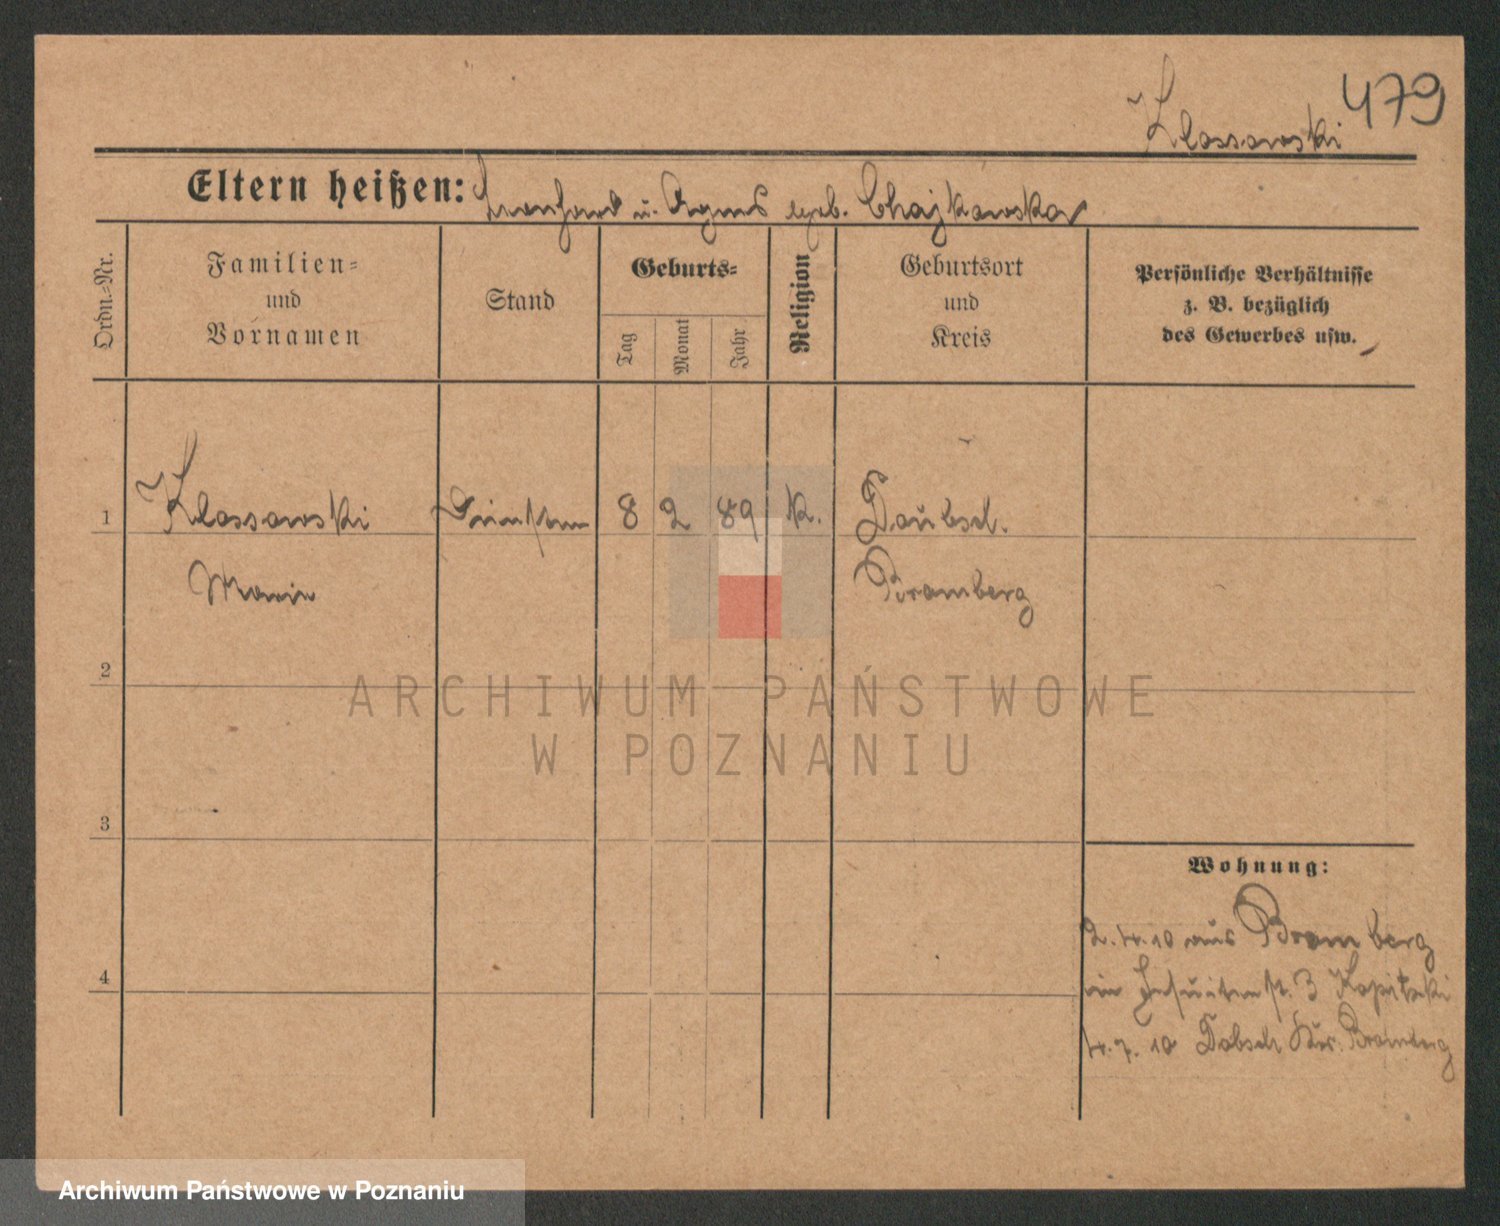 479
Klossowski
Eltern heißen: Leonhard u. Agnes geb. Chajkowska
Ordn.-Nr.
Familien-
und
Vornamen
Stand
Geburts-
Tag
Monat
Jahr
Religion
Geburtsort
und
Kreis
Persönliche Verhältnisse
z. B. bezüglich
des Gewerbes usw.
1 Klossowski 8 2 89 k.
Marie Bromberg
2
ARCHIWUM PAŃSTWOWE
W POZNANIU
3
Wohnung:
2. 4. 10 aus Bromberg
Jesuitenst. 3
4
4. 7. 10 Dobsch Kr. Bromberg
Archiwum Państwowe w Poznaniu